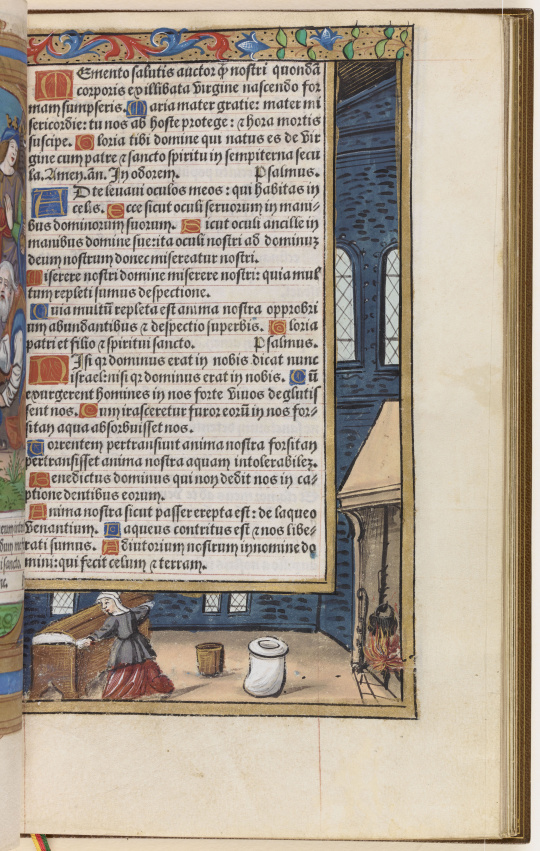 Memento salutis auctor ꝙ nostri quondā
corporis ex illibata virgine nascendo for
mam sumpseris. Maria mater gratie: mater mi
sericordie: tu nos ab hoste protege: ⁊ hora mortis
suscipe. Gloria tibi domine qui natus es de vir
gine cum patre ⁊ sancto spiritu in sempiterna secu
la. Amen. añ. In odorem. Psalmus.
AD te leuaui oculos meos: qui habitas in
celis. Ecce sicut oculi seruorum in mani-
bus dominorum suorum. Sicut oculi ancille in
manibus domine sue: ita oculi nostri ad dominuꝫ
deum nostrum donec misereatur nostri.
Miserere nostri domine miserere nostri: quia mul
tum repleti sumus despectione.
Quia multū repleta est anima nostra opprobri
um abundantibus ⁊ despectio superbis. Gloria
patri et filio ⁊ spiritui sancto. Psalmus.
NIsi qꝛ dominus erat in nobis dicat nunc
israel: nisi qꝛ dominus erat in nobis. Cū
exurgerent homines in nos forte viuos deglutis
sent nos. Cum irasceretur furor eorū in nos for-
sitan aqua absorbuisset nos.
Torrentem pertransiuit anima nostra forsitan
pertransisset anima nostra aquam intolerabileꝫ.
Benedictus dominus qui non dedit nos in ca-
ptione dentibus eorum.
Anima nostra sicut passer erepta est: de laqueo
venantium. Laqueus contritus est ⁊ nos libe-
rati sumus. Adiutorium nostrum in nomine do
mini: qui fecit celum ⁊ terram.